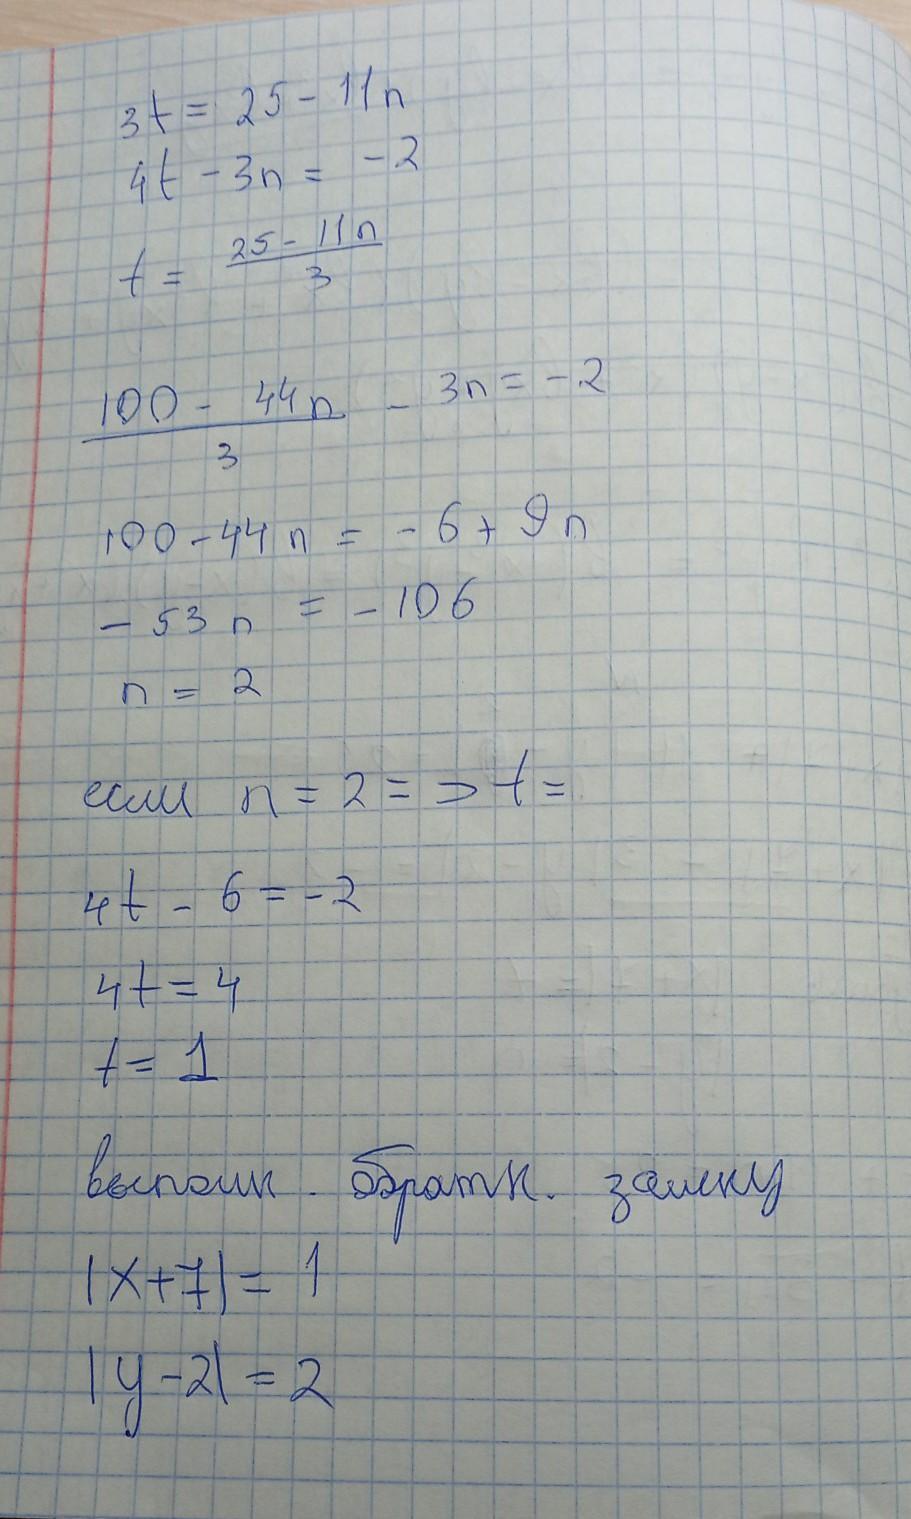 3t = 25 - 11n
4t - 3n = -2
t = \frac{25 - 11n}{3}
\frac{100 - 44n}{3} - 3n = -2
100 - 44n = -6 + 9n
-53n = -106
n = 2
если n = 2 = ⊃ t =
4t - 6 = -2
4t = 4
t = 1
выполн. обратн. замену
|x+7| = 1
|y-2| = 2